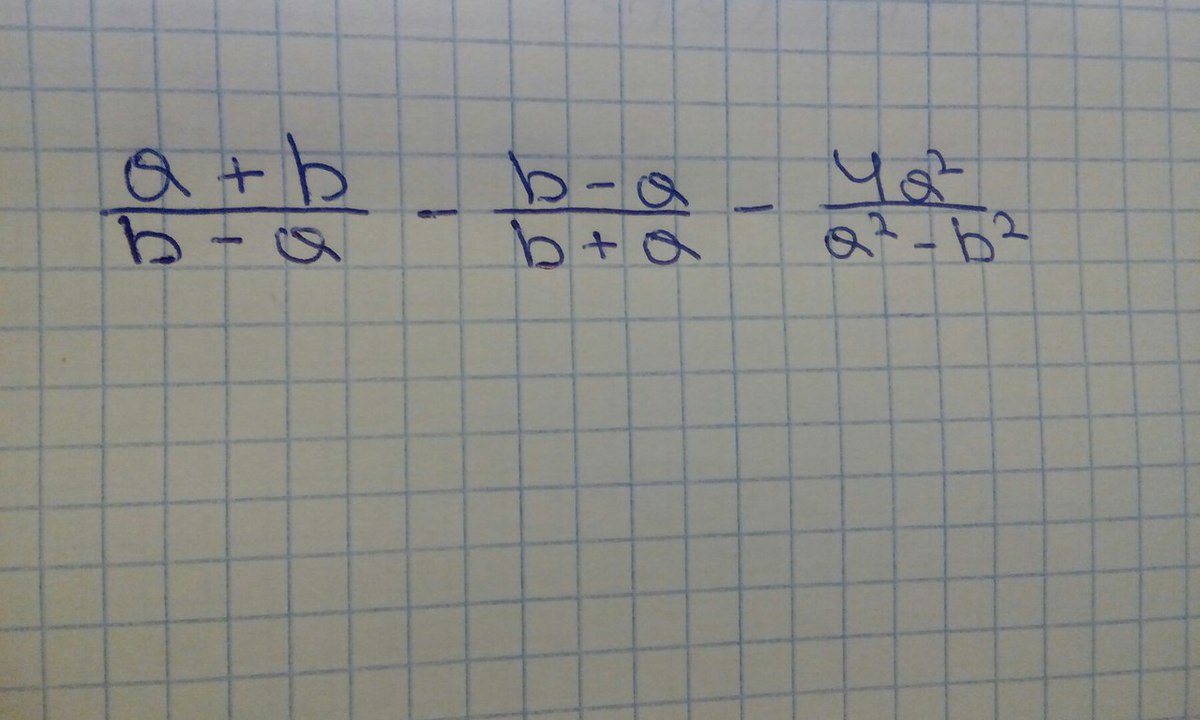 (a + b)/(b - a) - (b - a)/(b + a) - 4a²/(a² - b²)